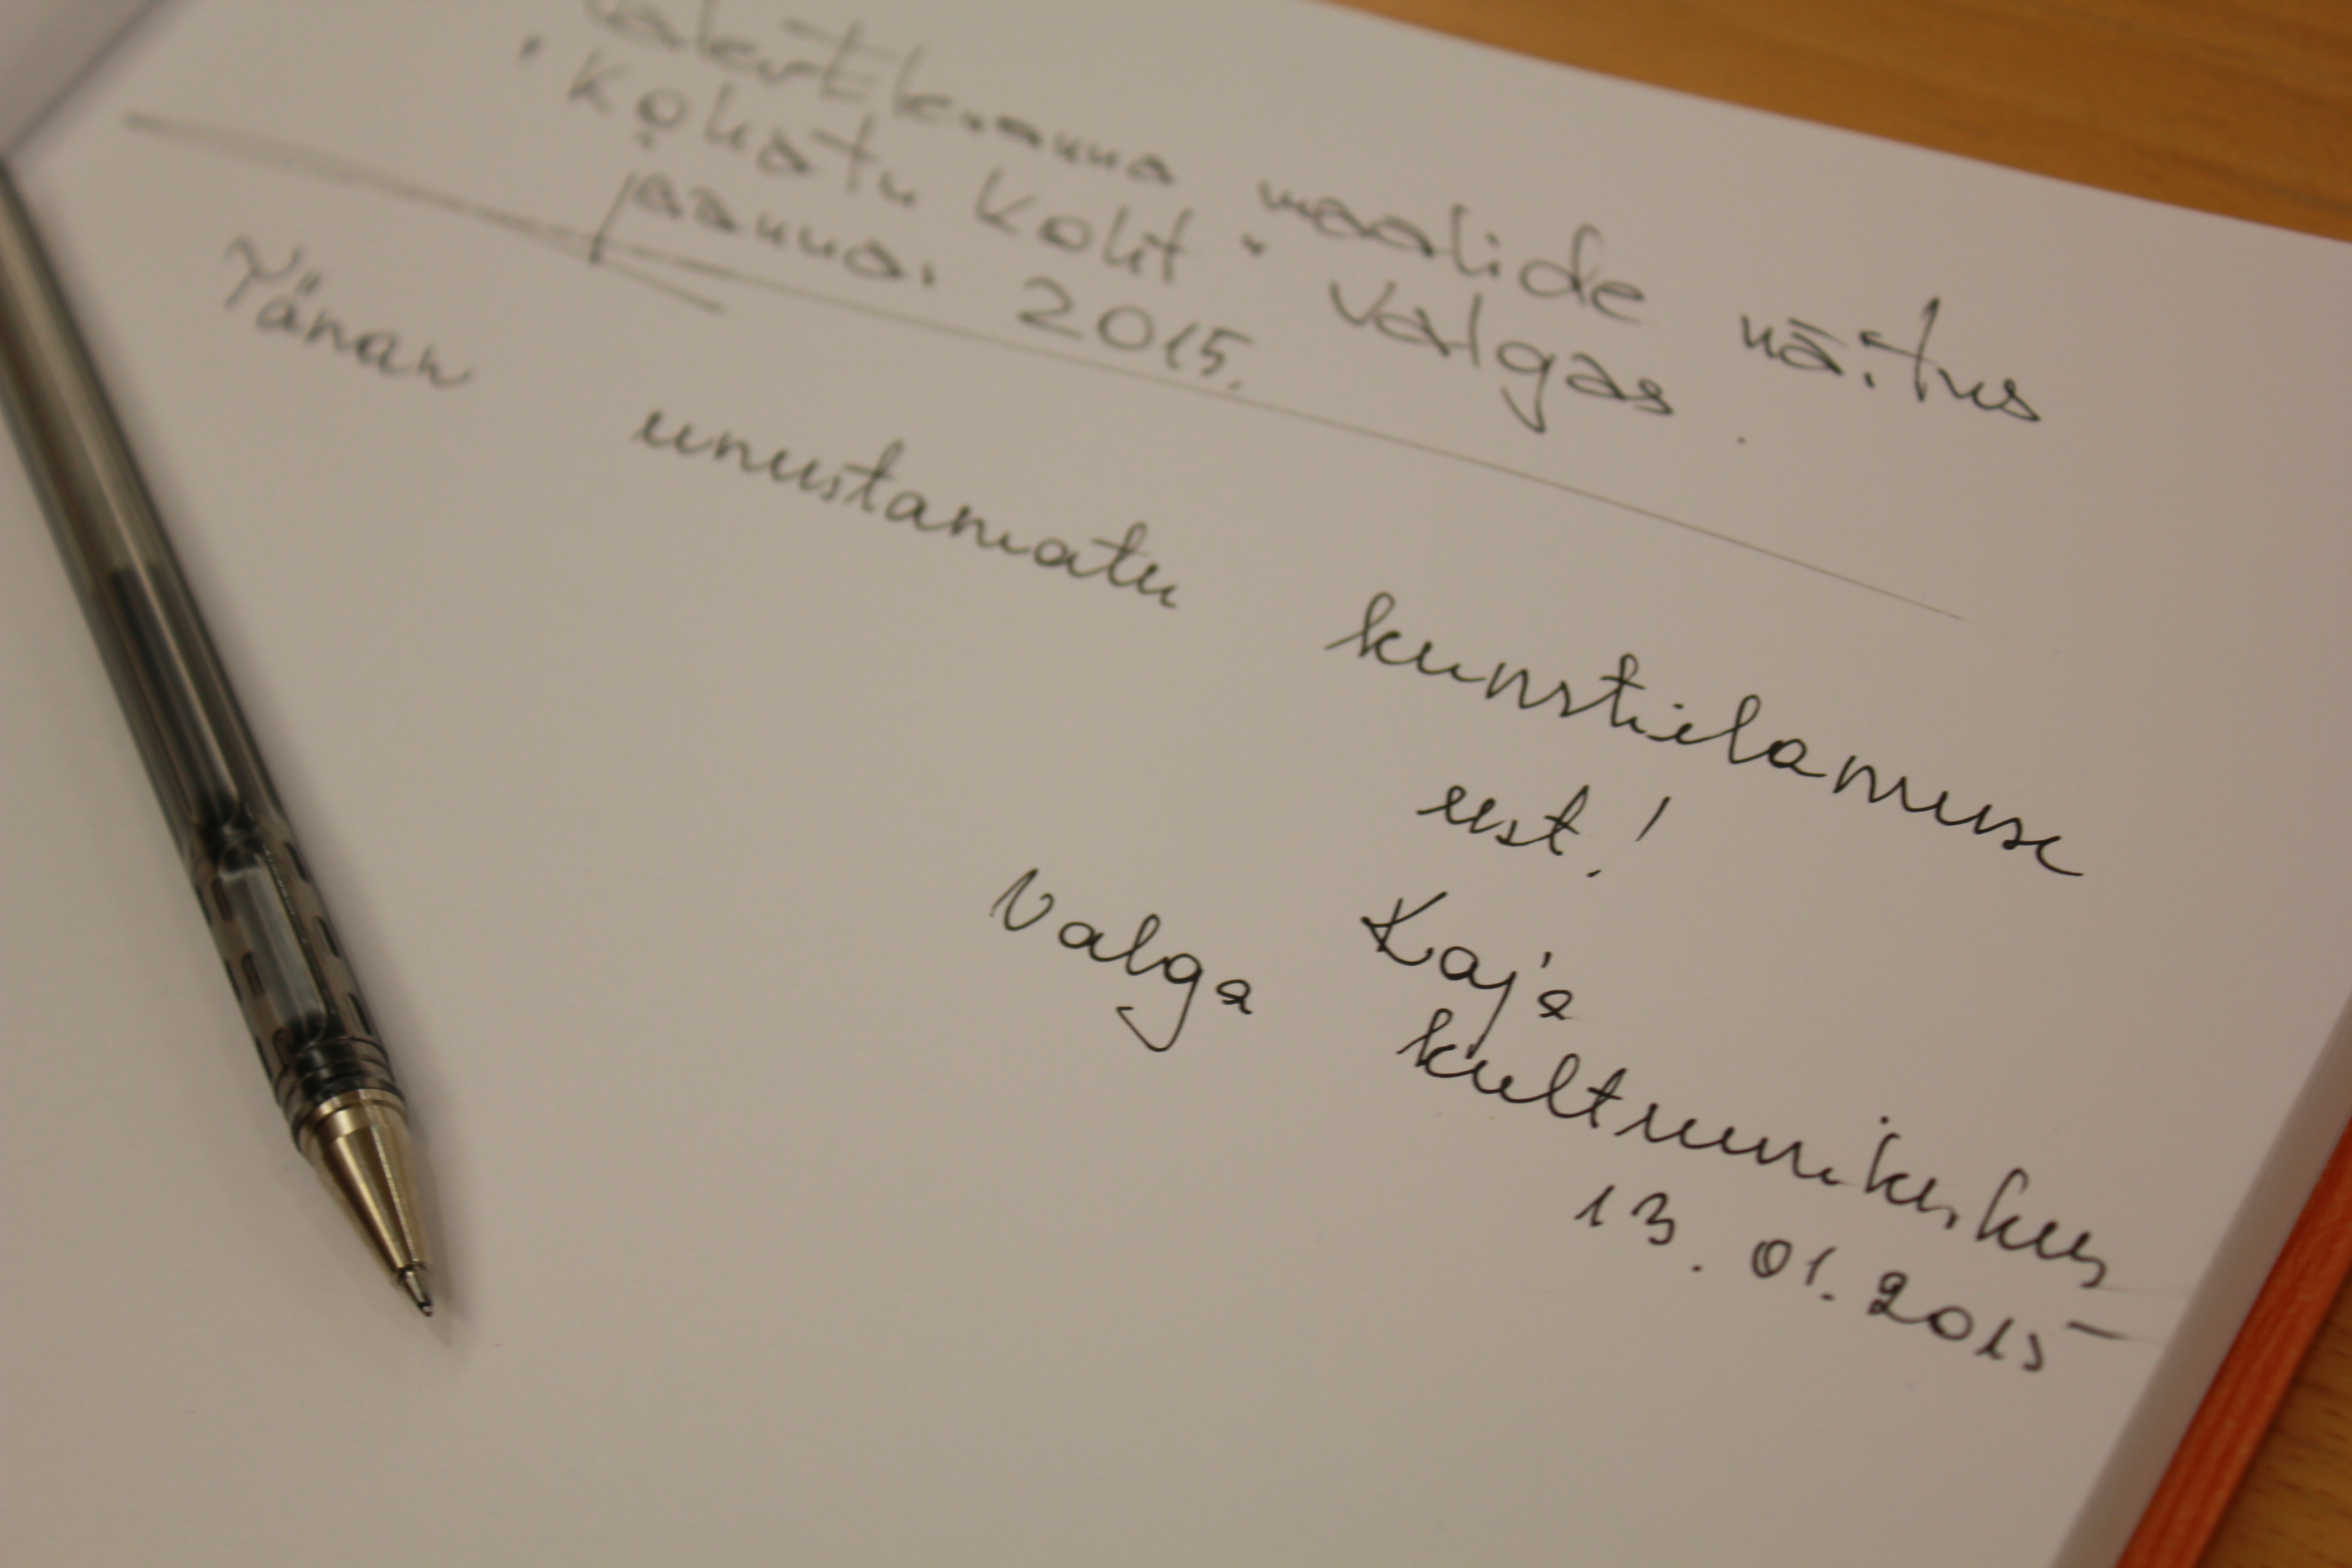 maalide näitus
"Kohatu koht" Valgas.
jaanua. 2015.
Tänan unustamatu kunstielamuse
eest!
Kaja
Valga kultuurikeskus
13. 01. 2015